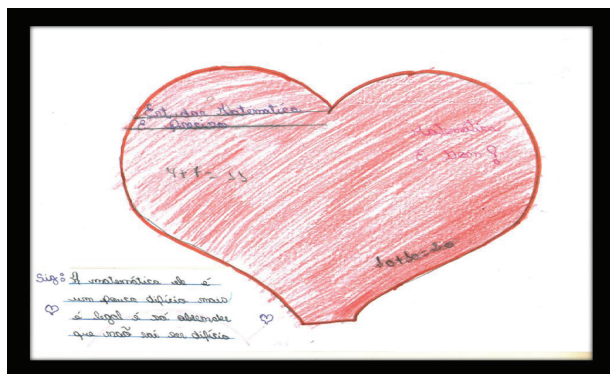 Estudar Matematica
E
Matematica
E
4+7=11
10+10=20
Sig: A matemática ela é
um pouco difício mais
é legal é só aprender
que não vai ser difício